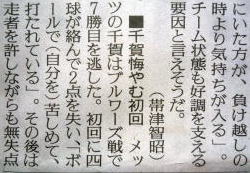 にいた方が、負け越しの
時より気持ちが入る」。
チーム状態も好調を支える
要因と言えそうだ。
(帯津智昭)
■千賀悔やむ初回 メッ
ツの千賀はブルワーズ戦で
7勝目を逃した。初回に四
球が絡んで2点を失い、「ボ
ールで(自分を)苦しめて
打たれている」。その後は
走者を許しながらも無失点